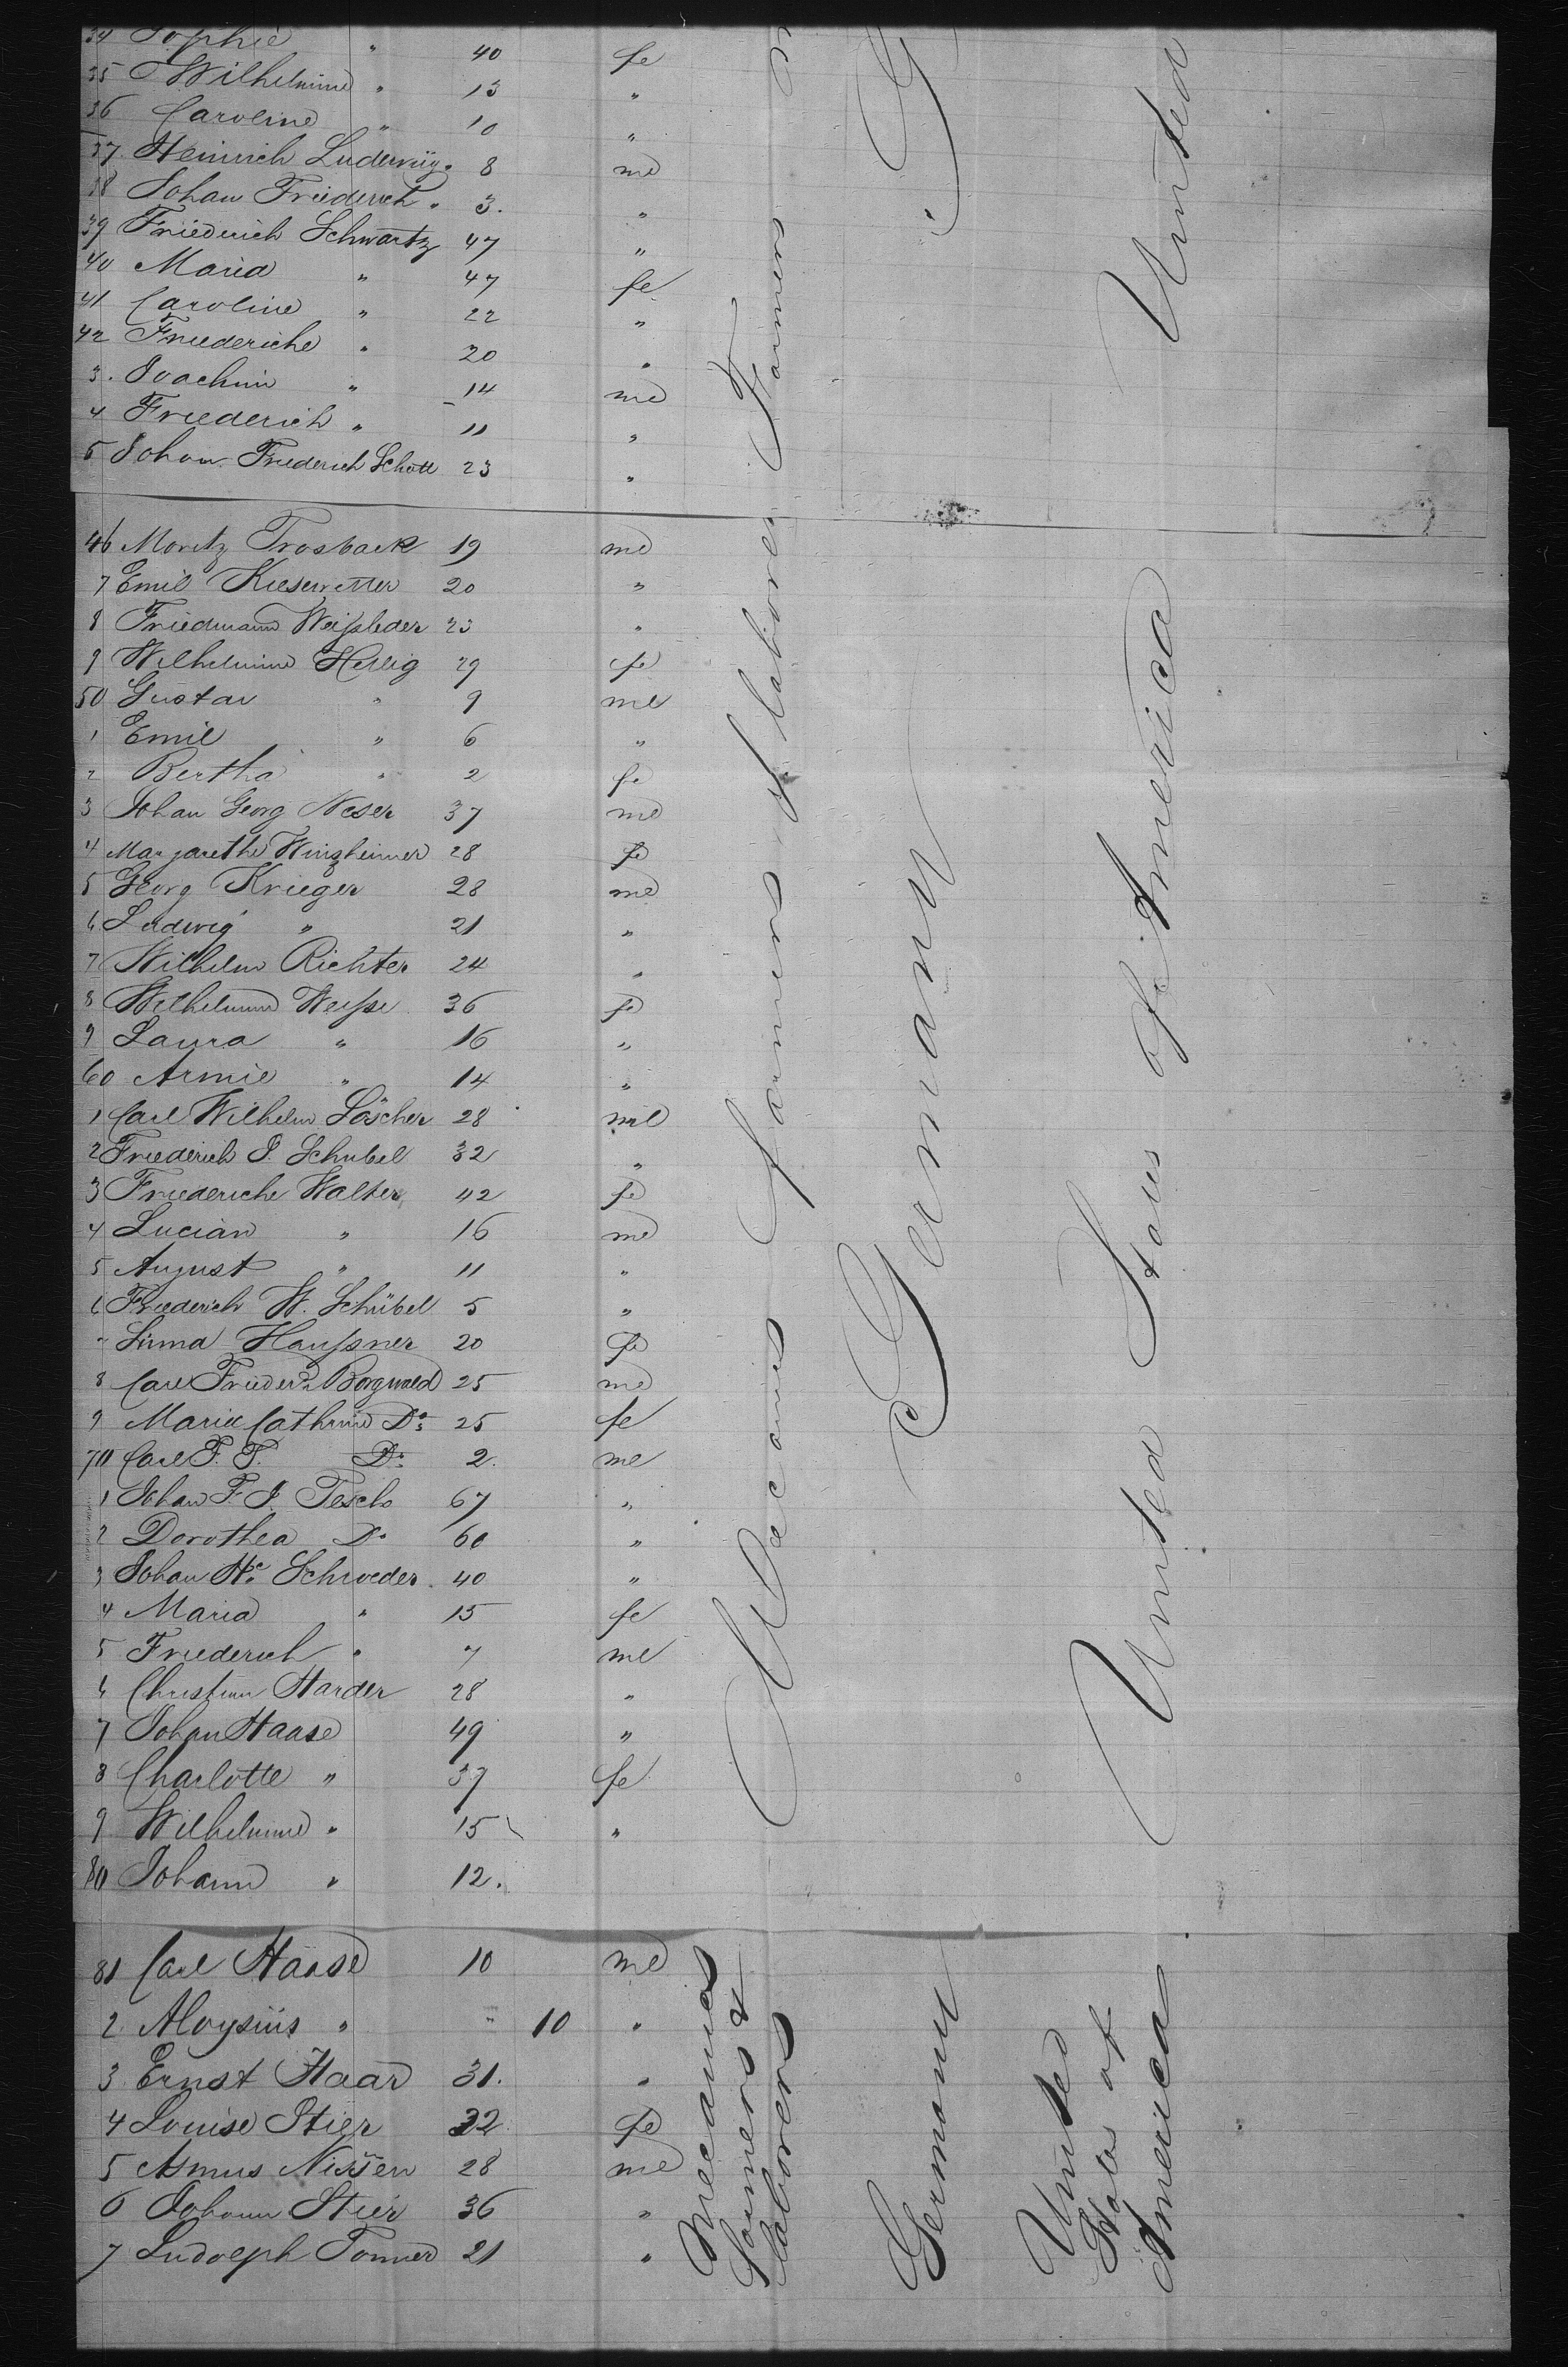 34 Sophie " 40 fe
35 Wilhelmine " 13 "
36 Caroline " 10 "
37. Heinrich Ludewig " 8 me
38 Johan Friederich " 3. "
39 Friederich Schwartz 47 "
40 Maria " 47 fe
41 Caroline " 22 "
42 Friederiche " 20 "
3. Joachim " 14 me
4 Friederich " 11 "
5 Johan Friederich Schott 23 "
46 Moritz Trosbach 19 me
7 Emil Kiesewetter 20 "
8 Friedmann Weißleder 23 "
9 Wilhelmine Hellig 29 fe
50 Gustav " 9 me
1 Emil " 6 "
2 Bertha " 2 fe
3 Johan Georg Neser 37 me
4 Margarethe Winzheimer 28 fe
5 Georg Krieger 28 me
6 Ludwig " 21 "
7 Wilhelm Richter 24 "
8 Wilhelmine Weiße 36 fe
9 Laura " 16 "
60 Armie " 14 "
1 Carl Wilhelm Löscher 28 me
2 Friederich J. Schubel 32 "
3 Friederiche Walter 42 fe
4 Lucian " 16 me
5 August " 11 "
6 Friederich W. Schübel 5 "
" Sirma Haußner 20 fe
8 Carl Frieder Borgwald 25 me
9 Marie Cathrine Do 25 fe
70 Carl F. T. Do 2. me
1 Johan F. J. Tesch 67 "
2 Dorothea Do 60 "
3 Johan Hc Schroeder 40 "
4 Maria " 15 fe
5 Friederich " 7 me
6 Christian Harder 28 "
7 Johan Haase 49 "
8 Charlotte " 37 fe
9 Wilhelmine " 15 "
80 Johann " 12.
81 Carl Haase 10 me
2 Aloysius " " 10 "
3 Ernst Haar 31. "
4 Louise Stier 32 fe
5 Asmus Nissen 28 me
6 Johann Stier 36 "
7 Ludolph Tonner 21 "
Mecanics Farmers & laborers
Farmers
Germany
G
United States of America
United
Mecanics
Farmers &
laborers
Germany
United
States of
America